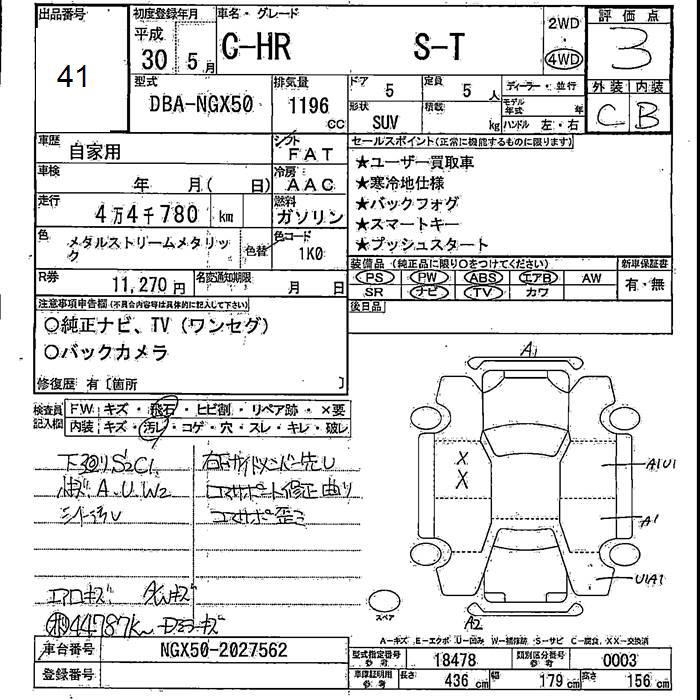 出品番号
41
初度登録年月
平成
30 5月
車名・グレード
C-HR S-T
2WD
4WD
評価点
3
型式
DBA-NGX50
排気量
1196
cc
ドア
5
定員
5 人
形状
SUV
積載
kg
ディーラー・並行
モデル年式 年
ハンドル 左・右
外装 内装
C B
車歴
自家用
シフト
FAT
車検
年 月( 日)
冷房
AAC
走行
4万4千780 km
燃料
ガソリン
色
メタルストリームメタリック
色替
色コード
1K0
R券
11,270円
名変通知期限
月 日
セールスポイント(正常に機能するものに限ります)
★ユーザー買取車
★寒冷地仕様
★バックフォグ
★スマートキー
★プッシュスタート
装備品(純正品に限り○をつけてください)
PS PW ABS エアB AW
SR ナビ TV カワ
新車保証書
有・無
後日品
注意事項申告欄(不具合内容等は具体的に記入して下さい)
○純正ナビ、TV(ワンセグ)
○バックカメラ
修復歴 有〔箇所 〕
検査員記入欄
FW キズ・飛石・ヒビ割・リペア跡・×要
内装 キズ・汚れ・コゲ・穴・スレ・キレ・破レ
下回りS2C1
A.U.W2
コアサポート修正曲り
コアサポ歪ミ
エアロキズ AWキズ
44787k
A1
X
X
A1U1
A1
U1A1
A2
スペア
A-キズ E-エクボ U-凹み W-補修跡 S-サビ C-腐食 XX-交換済
車台番号
NGX50-2027562
登録番号
型式指定番号
参考
18478
類別区分番号
参考
0003
車庫証明用
参考
長さ 436 cm 幅 179 cm 高さ 156 cm